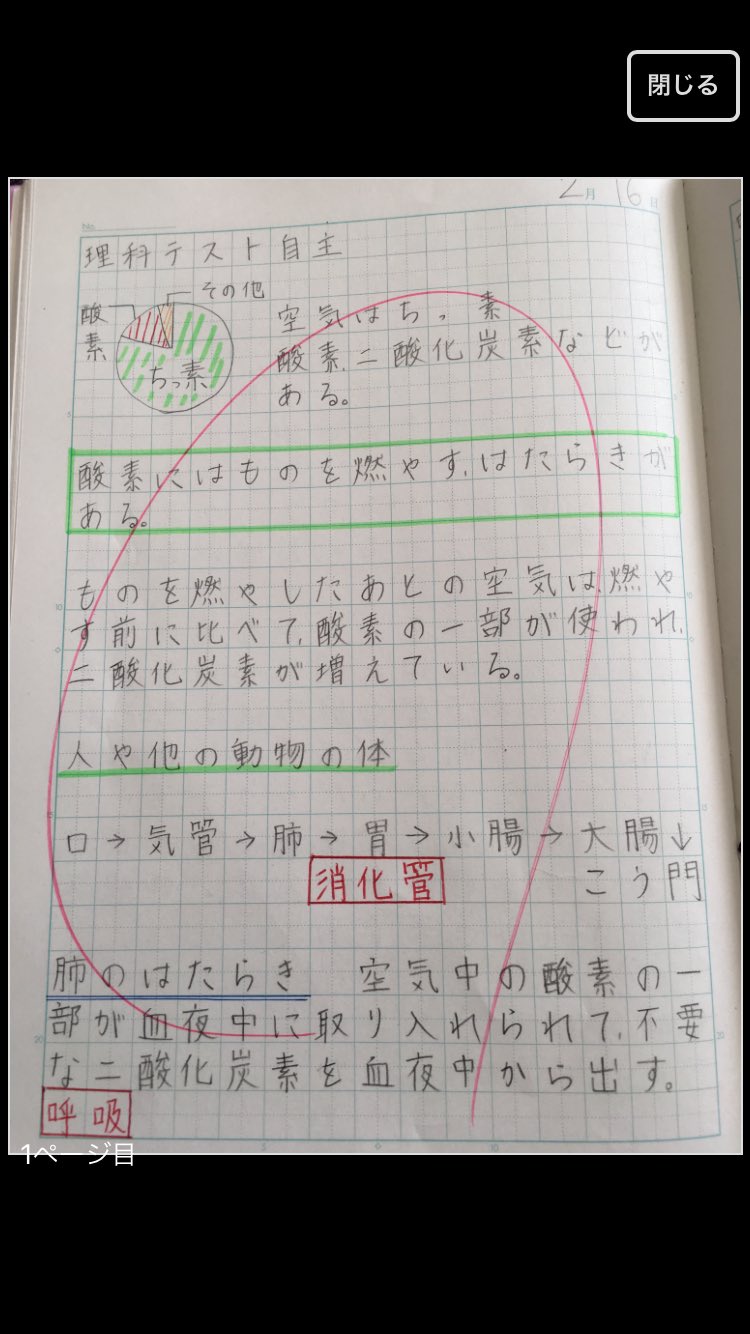 閉じる
2月 16日
No.
理科テスト自主
その他
酸素
ちっ素
空気はちっ素
酸素、二酸化炭素などが
ある。
酸素にはものを燃やす、はたらきが
ある。
ものを燃やしたあとの空気は、燃や
す前に比べて、酸素の一部が使われ、
二酸化炭素が増えている。
人や他の動物の体
口→気管→肺→胃→小腸→大腸↓
消化管
こう門
肺のはたらき 空気中の酸素の一
部が血夜中に取り入れられて、不要
な二酸化炭素を血夜中から出す。
呼吸
1ページ目